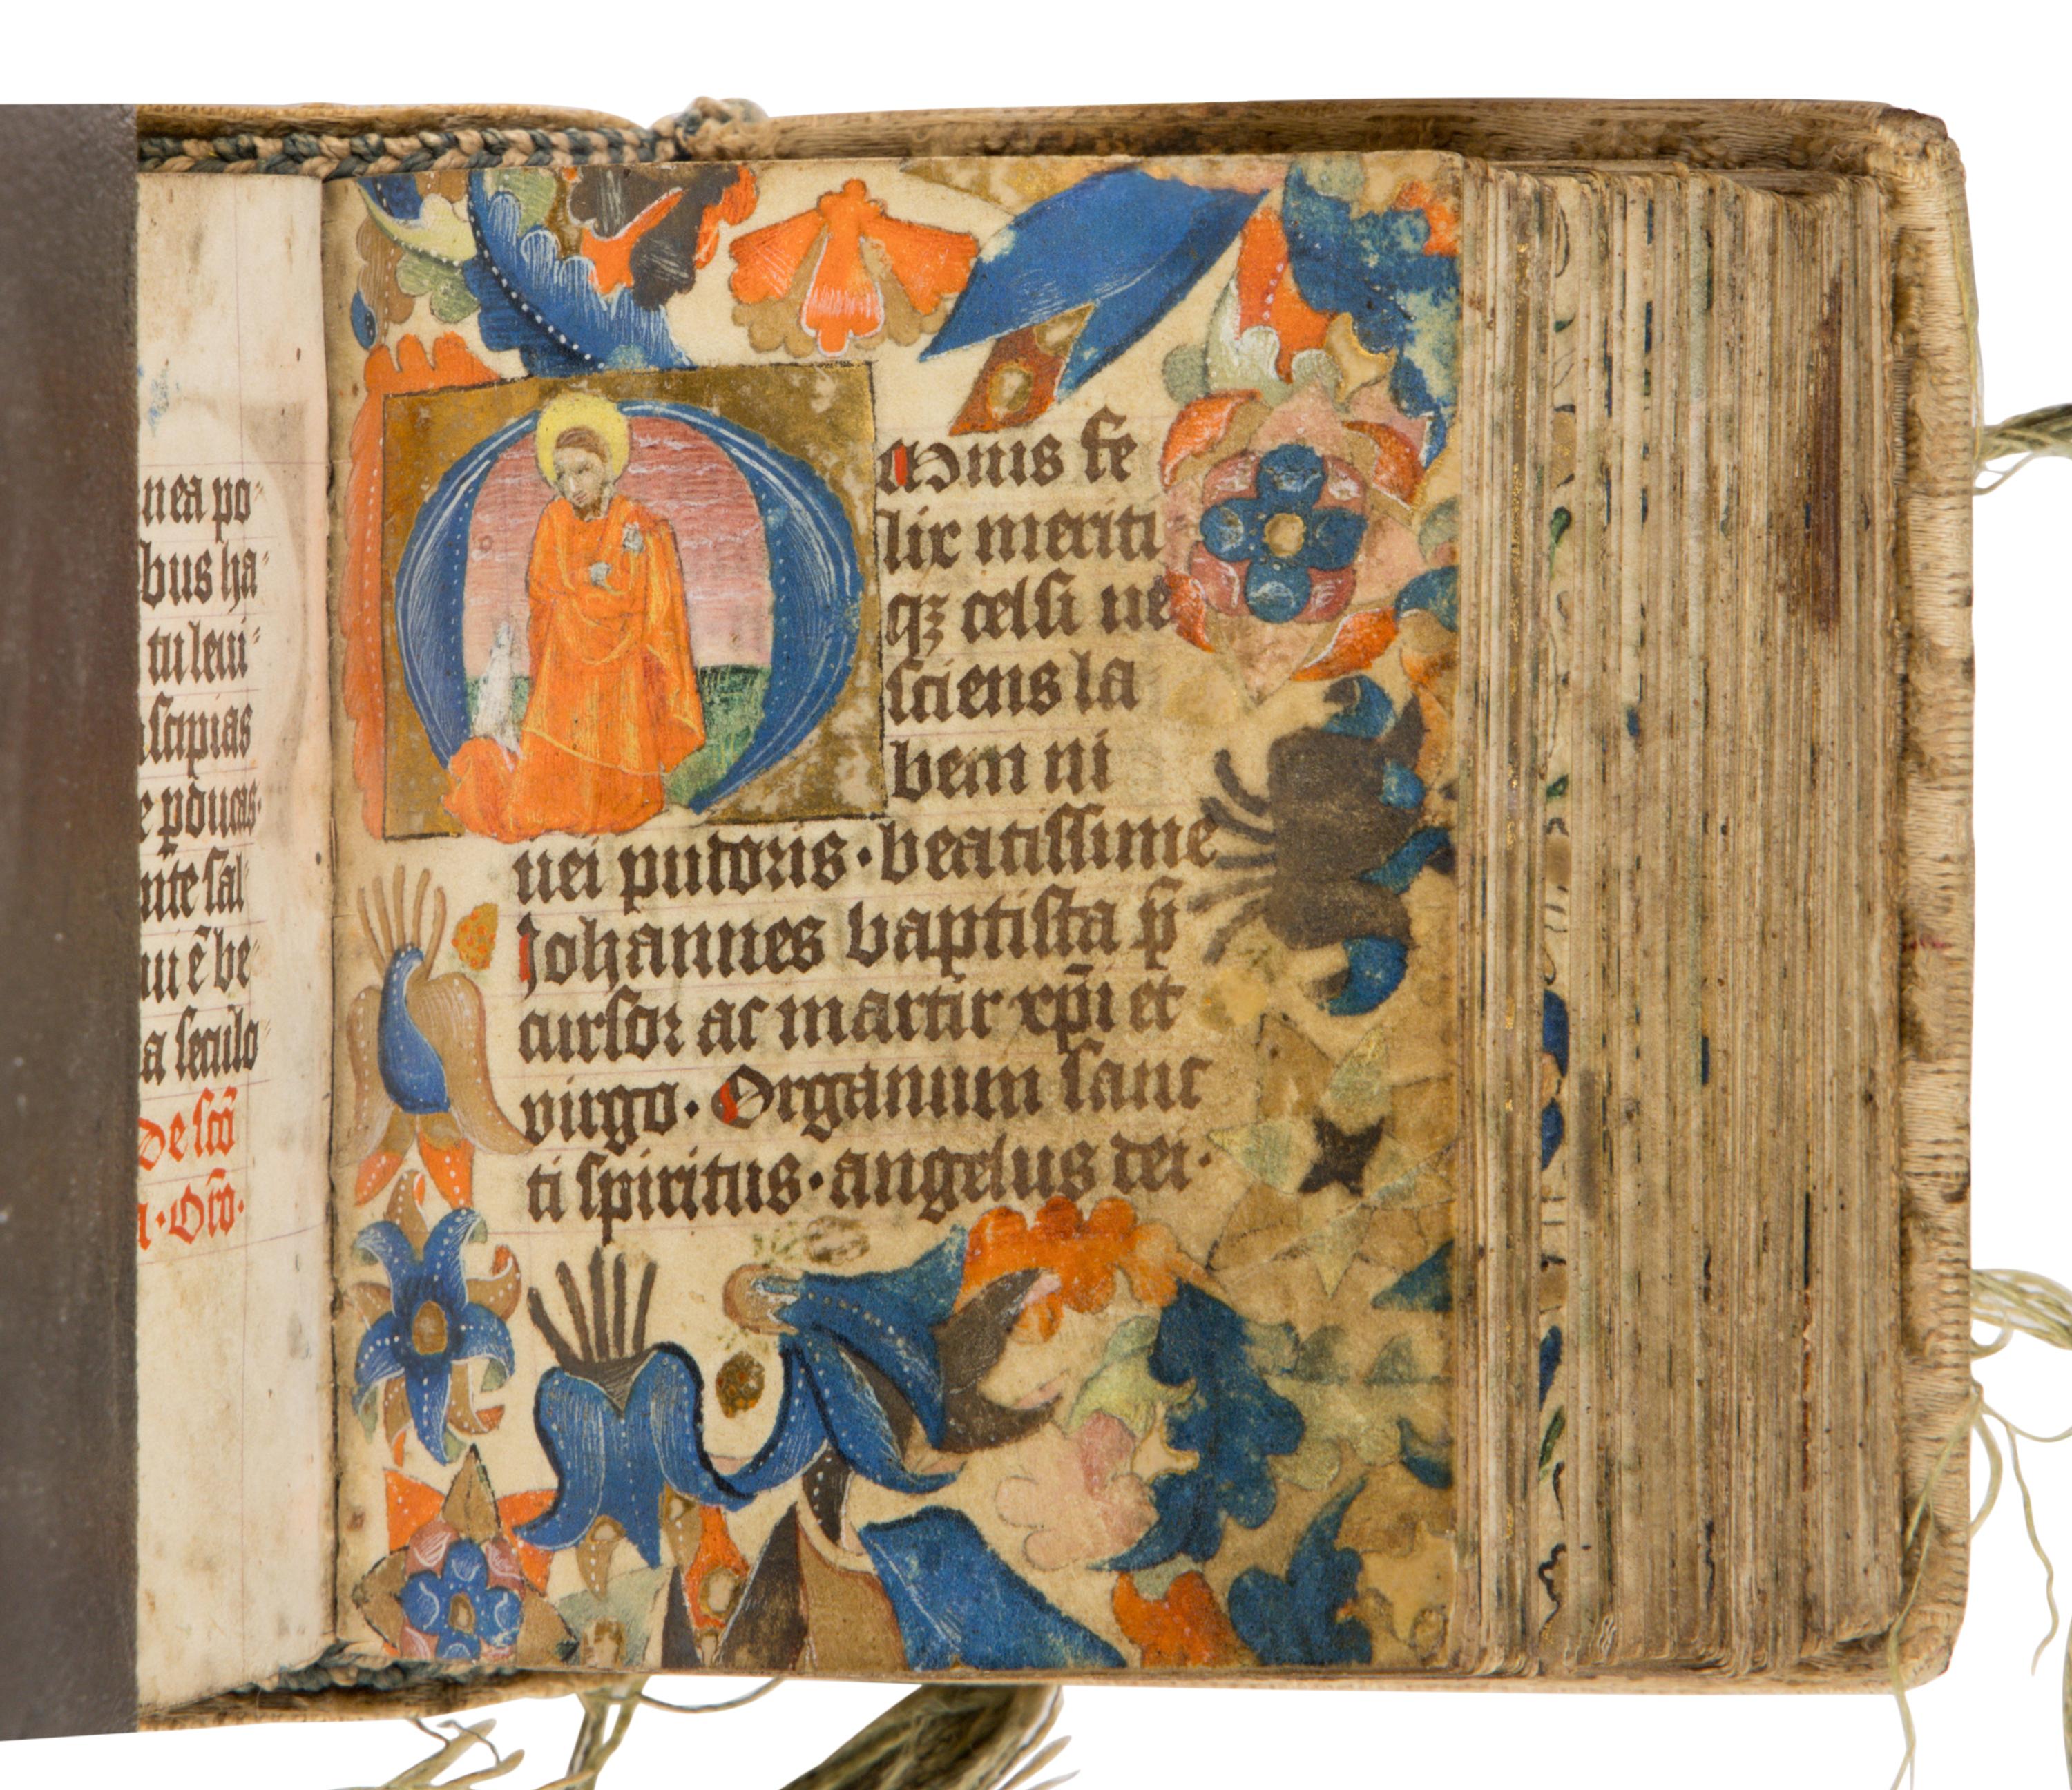 nea po-
bus ha-
tu leui-
scipias
e pducas.
nte sal
ui ē be-
a seculo
De scō
Orō.
O Nimis fe
lix meriti
qꝫ celsi ne
sciens la
bem ni
uei pudoris · beatissime
Johannes baptista p̄
cursor ac martir xp̄i et
virgo. Organum sanc
ti spiritus · angelus dei ·